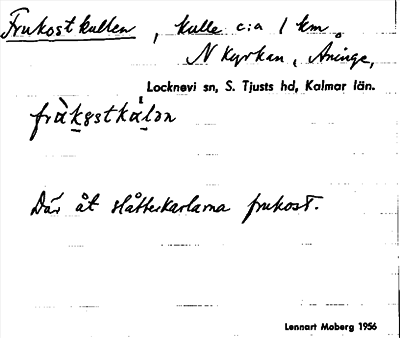 Frukostkullen, kulle c:a 1 km
N Kyrkan, Åninge,
Locknevi sn, S. Tjusts hd, Kalmar län.
fràk̲ɐstkàl̲ən
Där åt slåtterkarlarna frukost.
Lennart Moberg 1956